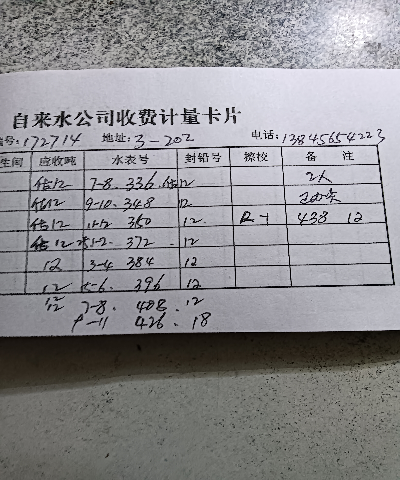 自来水公司收费计量卡片
号:172714 地址:3-202 电话:13845654223
生间 应收吨 水表号 封铅号 检校 备 注
估12 7-8. 336. 估12 2人
估12 9-10. 348 12
估12 11-12 360 12. 2-1 438 12
估12 1-2. 372 . 12
12 3-4 384 12
12 5-6. 396 12
12 7-8. 408. 12
9-11 426. 18